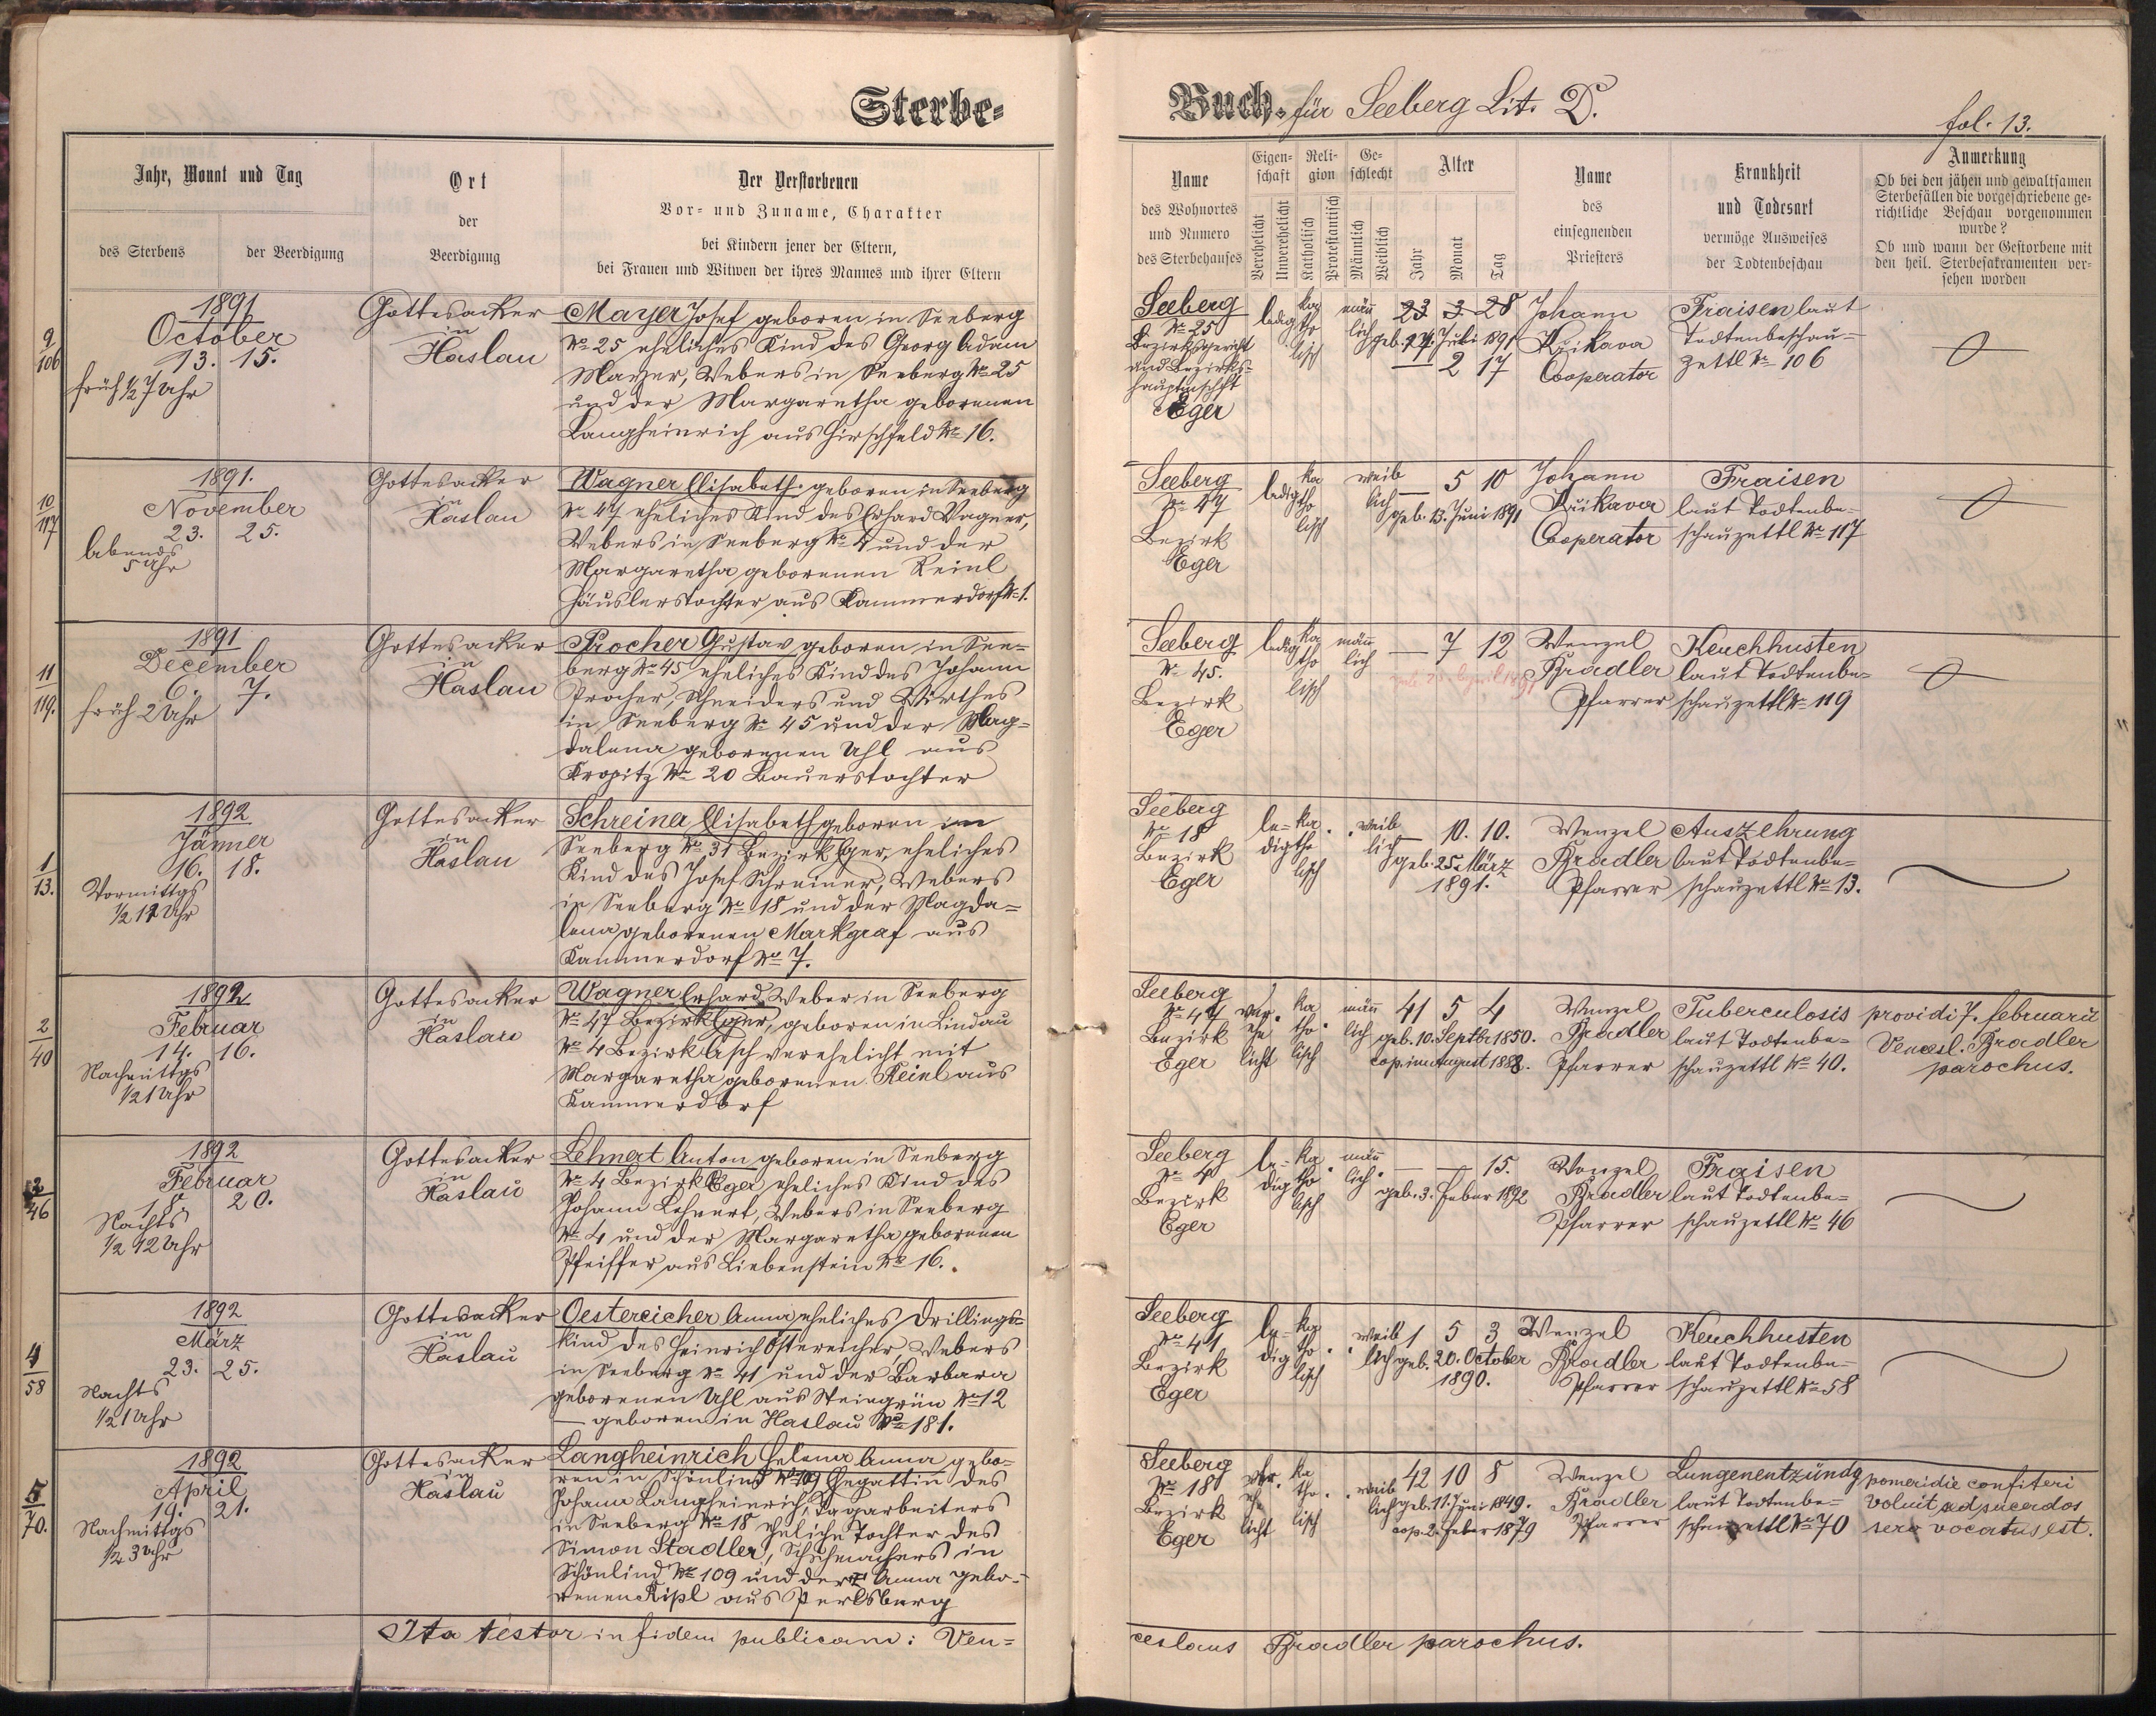 Sterbe-
Buch. für Seeberg Lit. D.
fol. 13.
Jahr, Monat und Tag
des Sterbens
der Beerdigung
Ort
der
Beerdigung
Der Verstorbenen
Vor- und Zuname, Charakter
bei Kindern jener der Eltern,
bei Frauen und Witwen der ihres Mannes und ihrer Eltern
Name
des Wohnortes
und Numero
des Sterbehauses
Eigen-
schaft
Verehelicht
Unverehelicht
Reli-
gion
Katholisch
Protestantisch
Ge-
schlecht
Männlich
Weiblich
Alter
Jahr
Monat
Tag
Name
des
einsegnenden
Priesters
Krankheit
und Todesart
vermöge Ausweises
der Todtenbeschau
Anmerkung
Ob bei den jähen und gewaltsamen
Sterbefällen die vorgeschriebene ge-
richtliche Beschau vorgenommen
wurde?
Ob und wann der Gestorbene mit
den heil. Sterbesakramenten ver-
sehen worden
9
106
1891
October
13. 15.
früh ½ 7 Uhr
Gottesacker
in
Haslau
Mayer Josef geboren in Seeberg
No 25 eheliches Kind des Georg Adam
Mayer, Webers in Seeberg No 25
und der Margaretha geborenen
Langheinrich aus Hirschfeld No 16.
Seeberg
No 25
Bezirksgericht
und Bezirks-
hauptmschft
Eger
ledig
ka
tho
lisch
män̄
lich
23 3 28
geb. 27. Juli 1891
— 2 17
Johann
Cooperator
Fraisen laut
Todtenbeschau-
zettl No 106
10
117
1891.
November
23. 25.
Abends
5 Uhr
Gottesacker
in
Haslau
Wagner Elisabeth geboren in Seeberg
No 47 eheliches Kind des Erhard Wagner,
Webers in Seeberg No 4 und der
Margaretha geborenen Reinl
Häuslerstochter aus Kammerdorf No 1.
Seeberg
No 47
Bezirk
Eger
ledig
ka
tho
lisch
weib
lich
— 5 10
geb. 13. Juni 1891
Johann
Cooperator
Fraisen
laut Todtenbe-
schauzettl No 117
11
119.
1891
December
6. 7.
früh 2 Uhr
Gottesacker
in
Haslau
Procher Gustav geboren in See-
berg No 45 eheliches Kind des Johann
Procher, Schneiders und Wirthes
in Seeberg No 45 und der Mag-
dalena geborenen Uhl aus
Kropitz No 20 Bauerstochter
Seeberg
No 45.
Bezirk
Eger
ledig
ka
tho
lisch
män̄
lich
— 7 12
geb. 25. April 1891
Wenzel
Bradler
Pfarrer
Keuchhusten
laut Todtenbe-
schauzettl No 119
1
13.
1892
Jänner
16. 18.
Vormittgs
½ 12 Uhr
Gottesacker
in
Haslau
Schreiner Elisabeth geboren in
Seeberg No 31 Bezirk Eger, eheliches
Kind des Josef Schreiner, Webers
in Seeberg No 18 und der Magda-
lena geborenen Markgraf aus
Kammerdorf No 7.
Seeberg
No 18
Bezirk
Eger
le-
dig
ka.
tho
lisch
weib
lich
— 10. 10.
geb. 25. März
1891.
Wenzel
Bradler
Pfarrer
Auszehrung
laut Todtenbe-
schauzettl No 13.
2
40
1892
Februar
14. 16.
Nachmittgs
½ 1 Uhr
Gottesacker
in
Haslau
Wagner Erhard, Weber in Seeberg
No 47 Bezirk Eger, geboren in Lindau
No 4 Bezirk Asch verehelicht mit
Margaretha geborenen Reinl aus
Kammerdorf
Seeberg
No 47
Bezirk
Eger
ver.
ehe
licht
ka
tho.
lisch
män̄
lich
41 5 4
geb. 10. Septbr 1850.
cop. im August 1888.
Wenzel
Bradler
Pfarrer
Tuberculosis
laut Todtenbe-
schauzettl No 40.
providi 7. februarii
Vencesl. Bradler
parochus.
46
1892
Februar
18. 20.
Nachts
½ 12 Uhr
Gottesacker
in
Haslau
Lehnert Anton geboren in Seeberg
No 4 Bezirk Eger, eheliches Kind des
Johann Lehnert, Webers in Seeberg
No 4 und der Margaretha geborenen
Pfeiffer aus Liebenstein No 16.
Seeberg
No 4
Bezirk
Eger
le-
dig
ka.
tho
lisch
män̄
lich.
— — 15.
geb. 3. Feber 1892
Wenzel
Bradler
Pfarrer
Fraisen
laut Todtenbe-
schauzettl No 46
4
58
1892
März
23. 25.
Nachts
½ 1 Uhr
Gottesacker
in
Haslau
Oestereicher Anna, eheliches Drillings-
kind des Heinrich Östereicher Webers
in Seeberg No 41 und der Barbara
geborenen Uhl aus Steingrün No 12
— geboren in Haslau No 181.
Seeberg
No 41
Bezirk
Eger
le-
dig
ka
tho.
lisch
weib
lich
1 5 3
geb. 20. October
1890.
Wenzel
Bradler
Pfarrer
Keuchhusten
laut Todtenbe-
schauzettl No 58
5
70.
1892
April
19. 21.
Nachmittgs
½ 3 Uhr
Gottesacker
in
Haslau
Langheinrich Helena Anna gebo-
ren in Schönlind No 109 Ehegattin des
Johann Langheinrich, Tagarbeiters
in Seeberg No 18 eheliche Tochter des
Simon Stadler, Schuhmachers in
Schönlind No 109 und der Anna gebo-
renen Ripl aus Perlsberg
Seeberg
No 18
Bezirk
Eger
ver.
ehe
licht
ka
tho.
lisch
weib
lich
42 10 8
geb. 11. Juni 1849.
cop. 2. Feber 1879
Wenzel
Bradler
Pfarrer
Lungenentzündg
laut Todtenbe-
schauzettl No 70
pomeridie confiteri
voluit sed sacerdos
sero vocatus est.
Ita testor in fidem publicam: Ven-
ceslaus Bradler parochus.